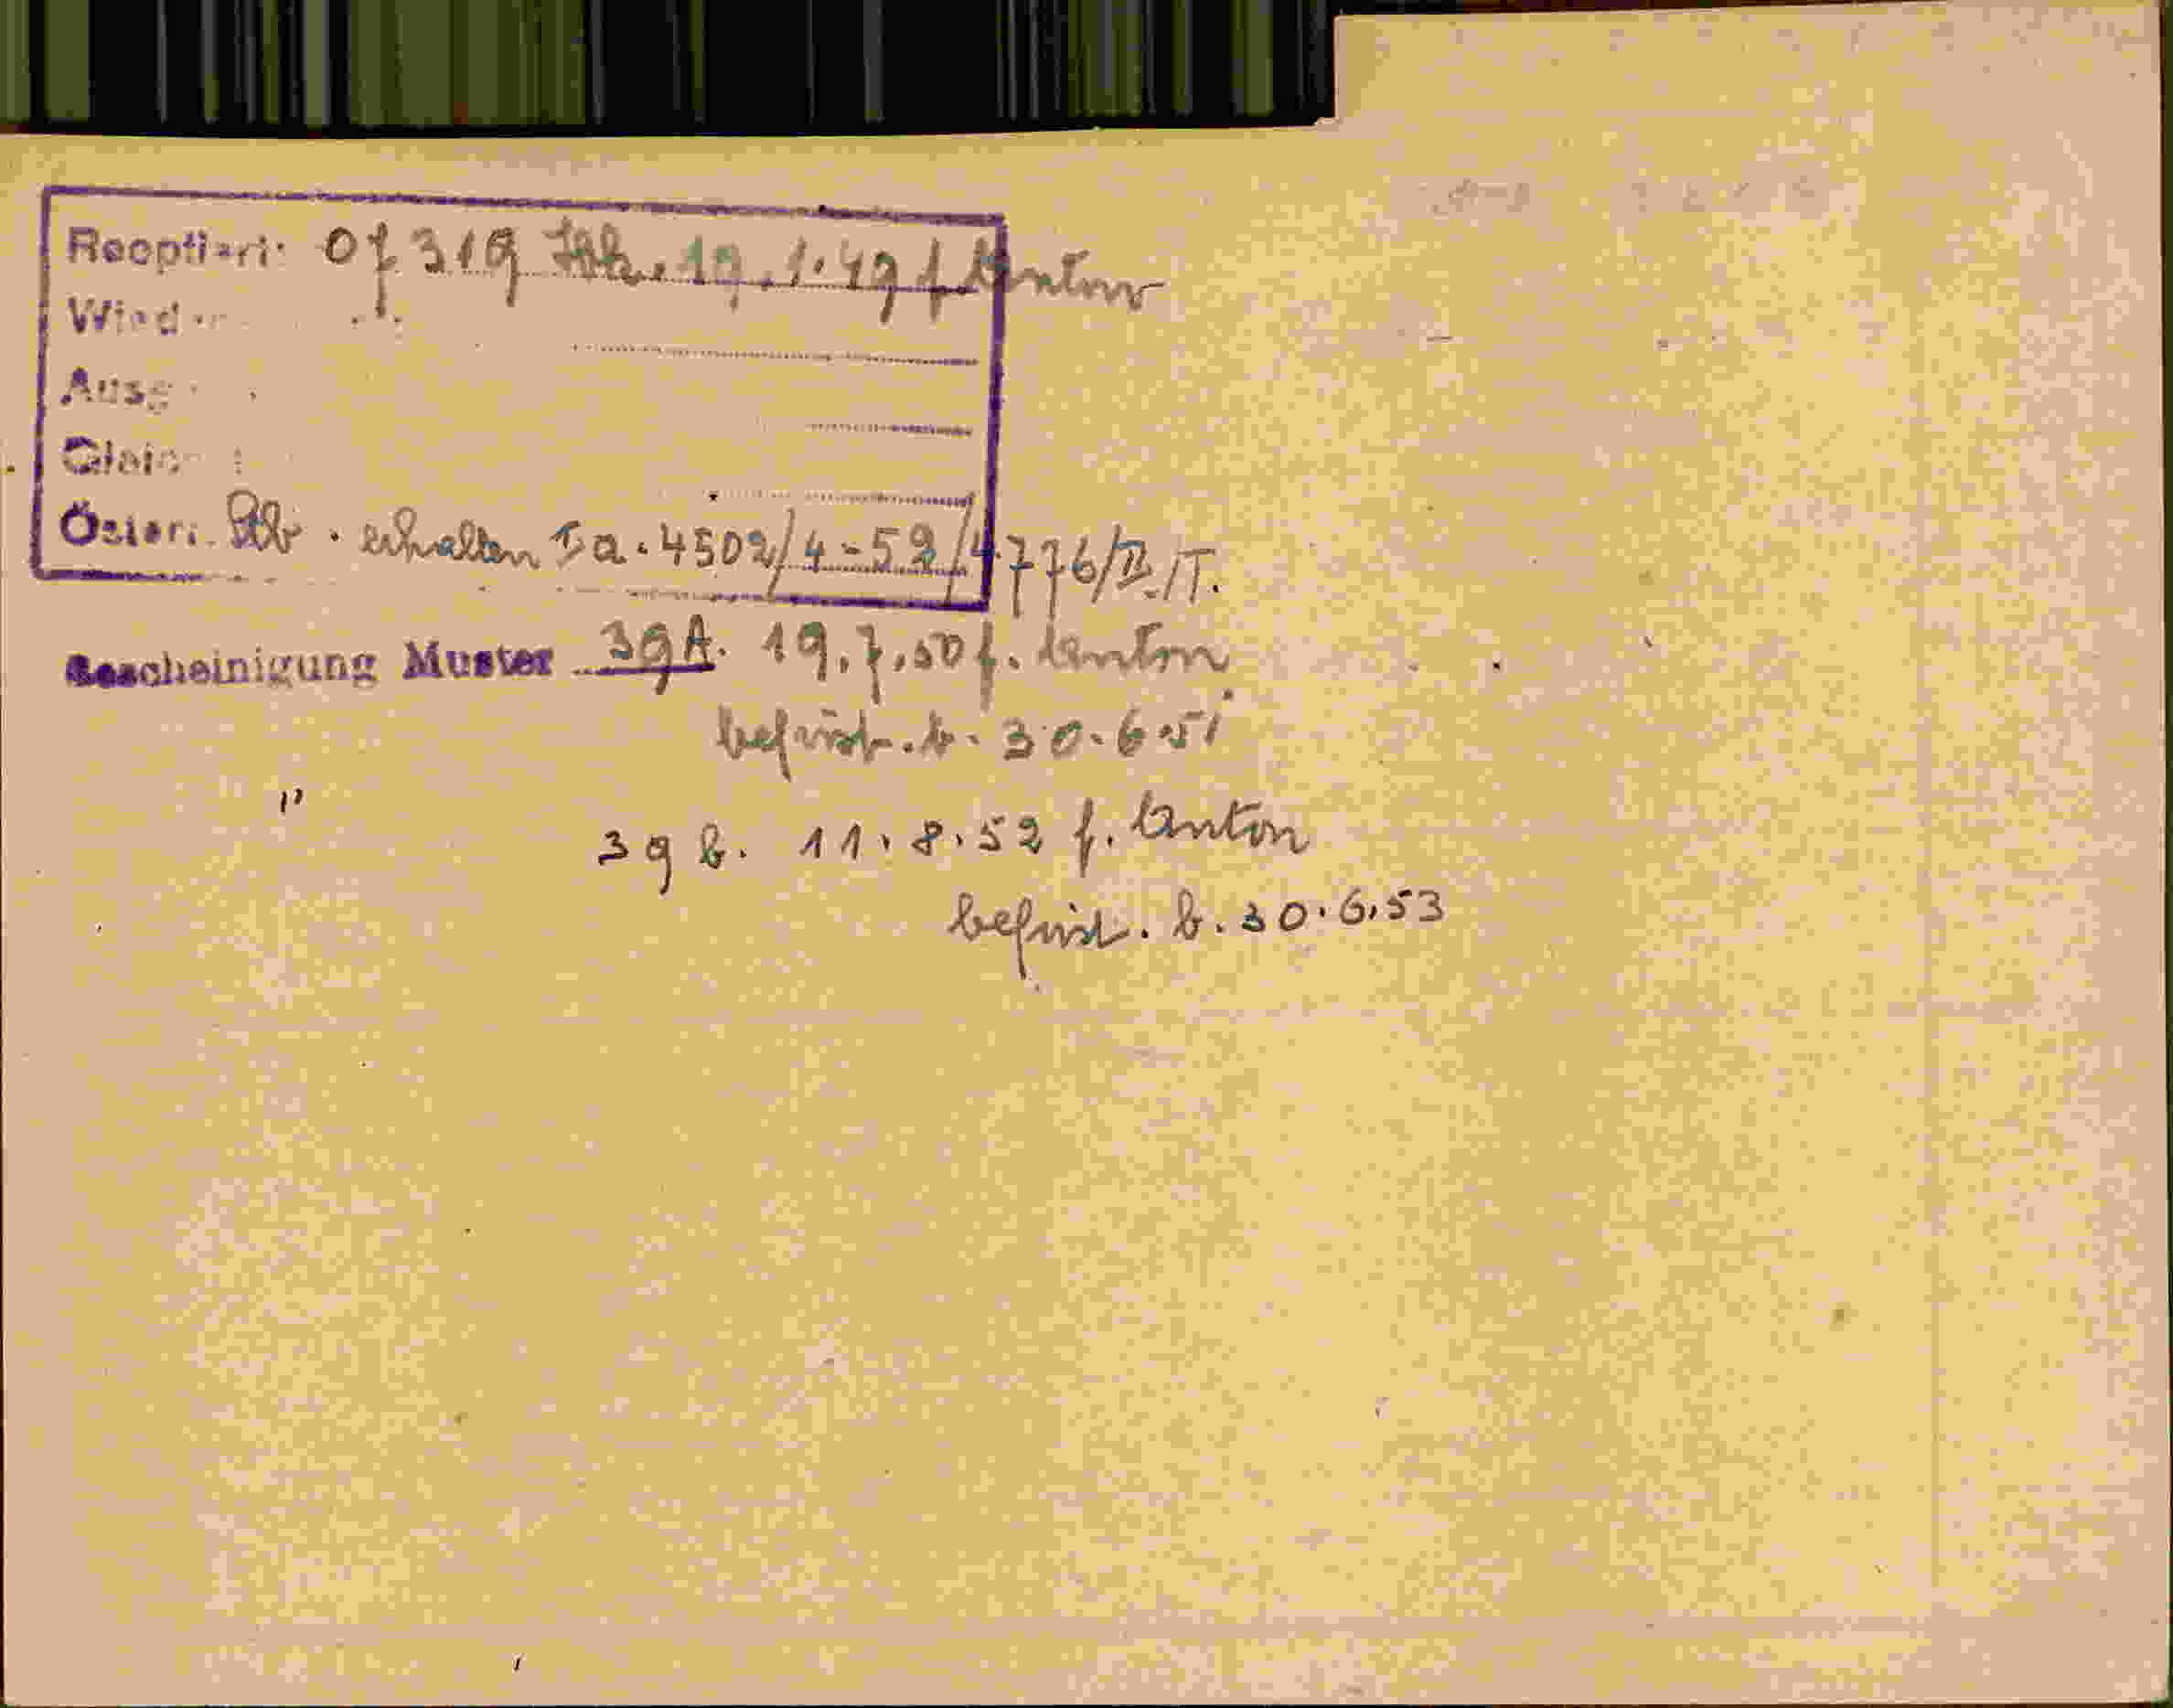 Reoptiert: 07319 19.1.49 f. Anton
Wied
Ausg
Gleic :
Österr. Stb. erhalten Ia. 4502/4-52/4776/II/T.
Bescheinigung Muster 39A. 19.7.50 f. Anton
befrist. b. 30.6.51
" 39 b. 11.8.52 f. Anton
befrist. b. 30.6.53